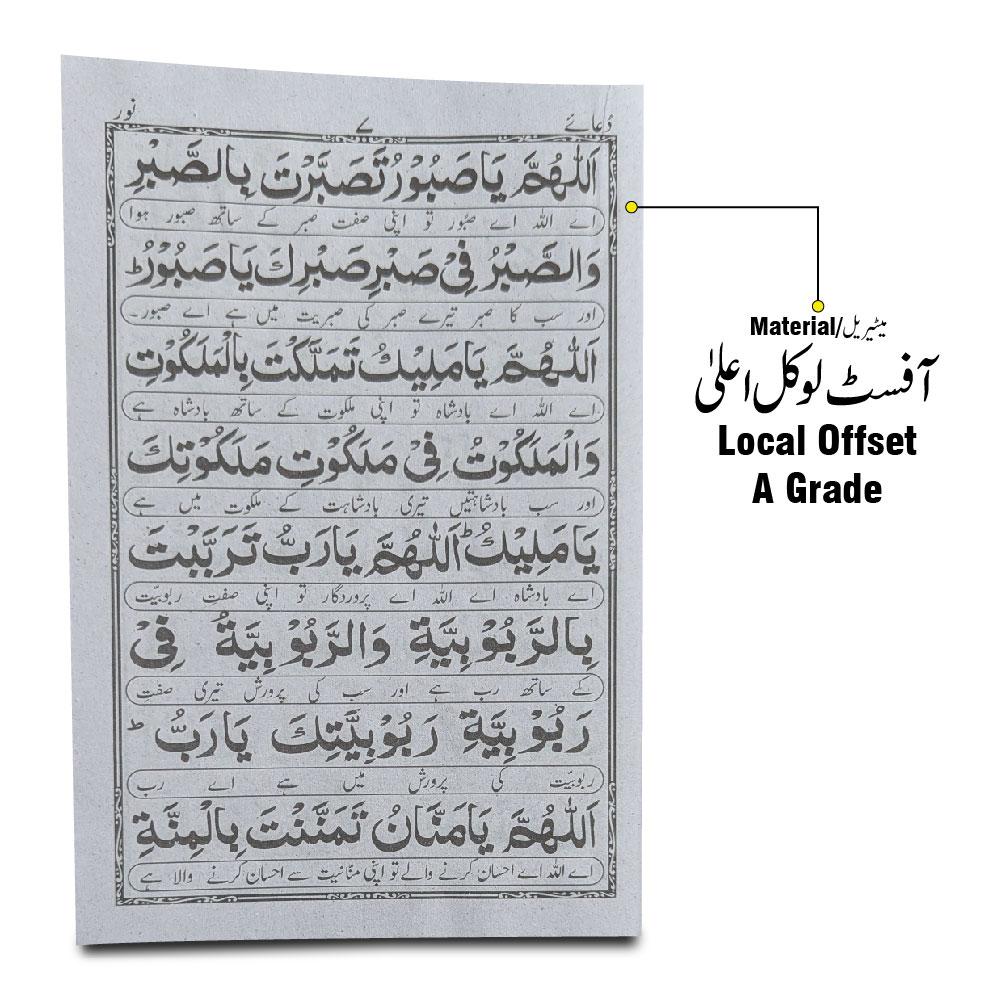 دُعائے ۷ نور
اَللّٰهُمَّ يَا صَبُوْرُ تَصَبَّرْتَ بِالصَّبْرِ
اے اللہ اے صبور تو اپنی صفت صبر کے ساتھ صبور ہوا
وَالصَّبْرُ فِىْ صَبْرِ صَبْرِكَ يَا صَبُوْرُ ط
اور سب کا صبر تیرے صبر کی صبریت میں ہے اے صبور۔
اَللّٰهُمَّ يَا مَلِيْكُ تَمَلَّكْتَ بِالْمَلَكُوْتِ
اے اللہ اے بادشاہ تو اپنی ملکوت کے ساتھ بادشاہ ہے
وَالْمَلَكُوْتُ فِىْ مَلَكُوْتِ مَلَكُوْتِكَ
اور سب بادشاہتیں تیری بادشاہت کے ملکوت میں ہے
يَا مَلِيْكُ ط اَللّٰهُمَّ يَا رَبُّ تَرَبَّبْتَ
اے بادشاہ اے اللہ اے پروردگار تو اپنی صفتِ ربوبیّت
بِالرَّبُوْبِيَّةِ وَالرَّبُوْبِيَّةُ فِىْ
کے ساتھ رب ہے اور سب کی پرورش تیری صفتِ
رَبُوْبِيَّةِ رَبُوْبِيَّتِكَ يَا رَبُّ ط
ربوبیّت کی پرورش میں ہے اے رب
اَللّٰهُمَّ يَا مَنَّانُ تَمَنَّنْتَ بِالْمِنَّةِ
اے اللہ اے احسان کرنے والے تو اپنی منّانیت سے احسان کرنے والا ہے
Material/میٹیریل
آفسٹ لوکل اعلیٰ
Local Offset
A Grade